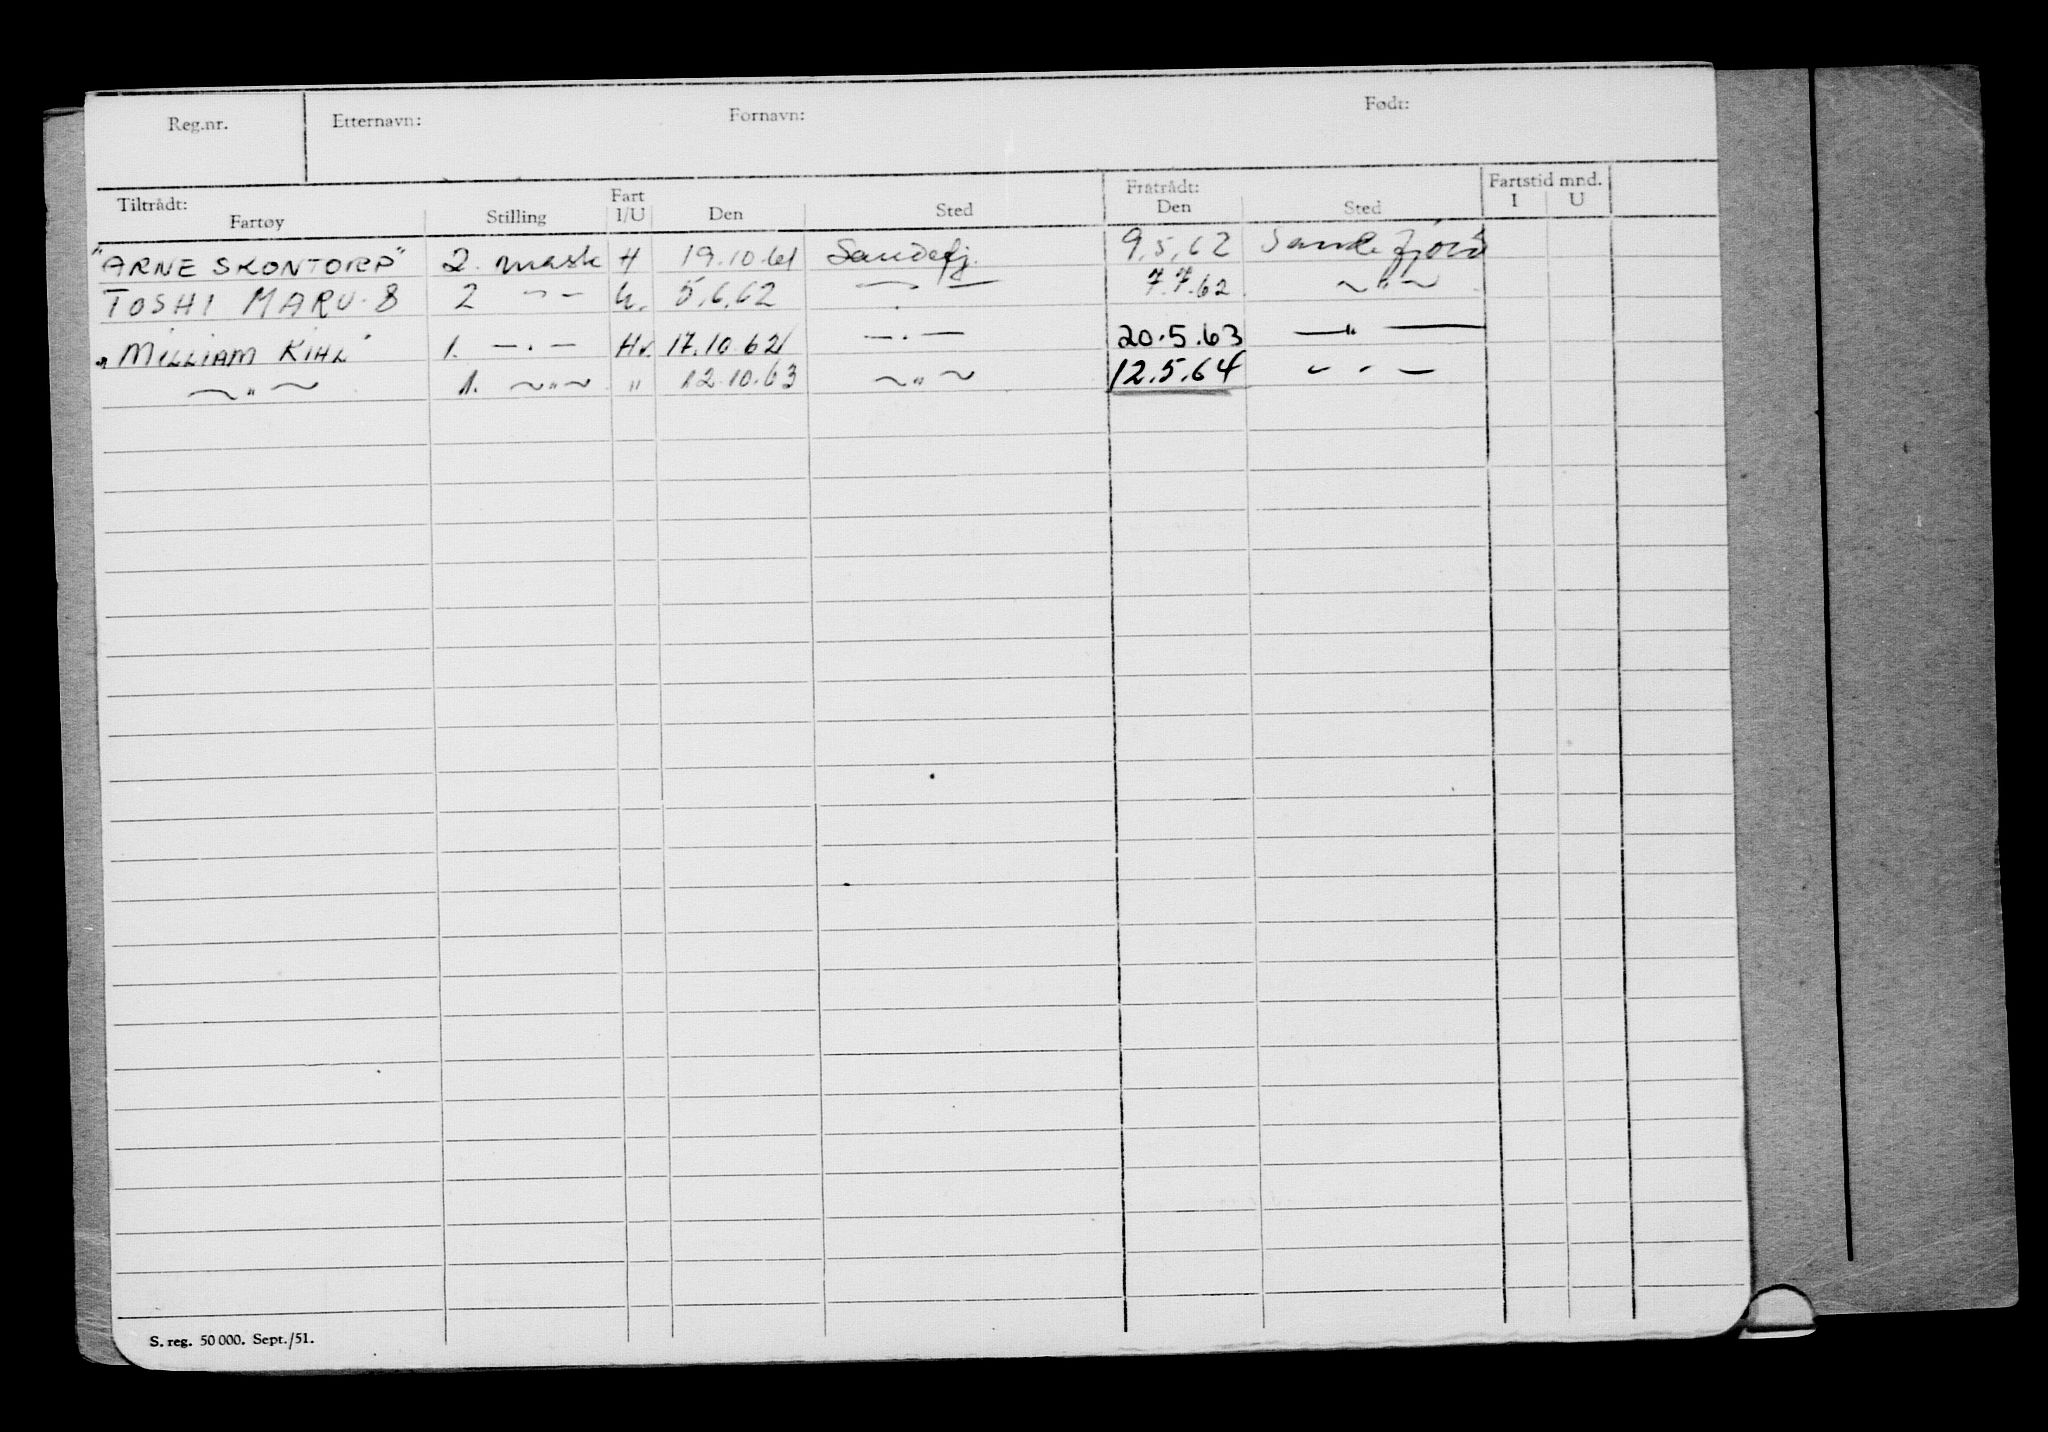 Reg.nr. Etternavn: Fornavn: Født:
Tiltrådt: Fratrådt: Fartstid mnd.
Fartøy Stilling Fart I/U Den Sted Den Sted I U
"ARNE SKONTORP" 2. mask H 19.10.61 Sandefj. 9.5.62 Sandefjord
TOSHI MARU 8 2 — — U. 5.6.62 — . — 7.7.62 ~ " ~
"WILLIAM KIHL" 1. — . — Hv. 17.10.62 — . — 20.5.63 — " —
~ " ~ 1. ~ " ~ " 12.10.63 ~ " ~ 12.5.64 - " -
S. reg. 50 000. Sept./51.